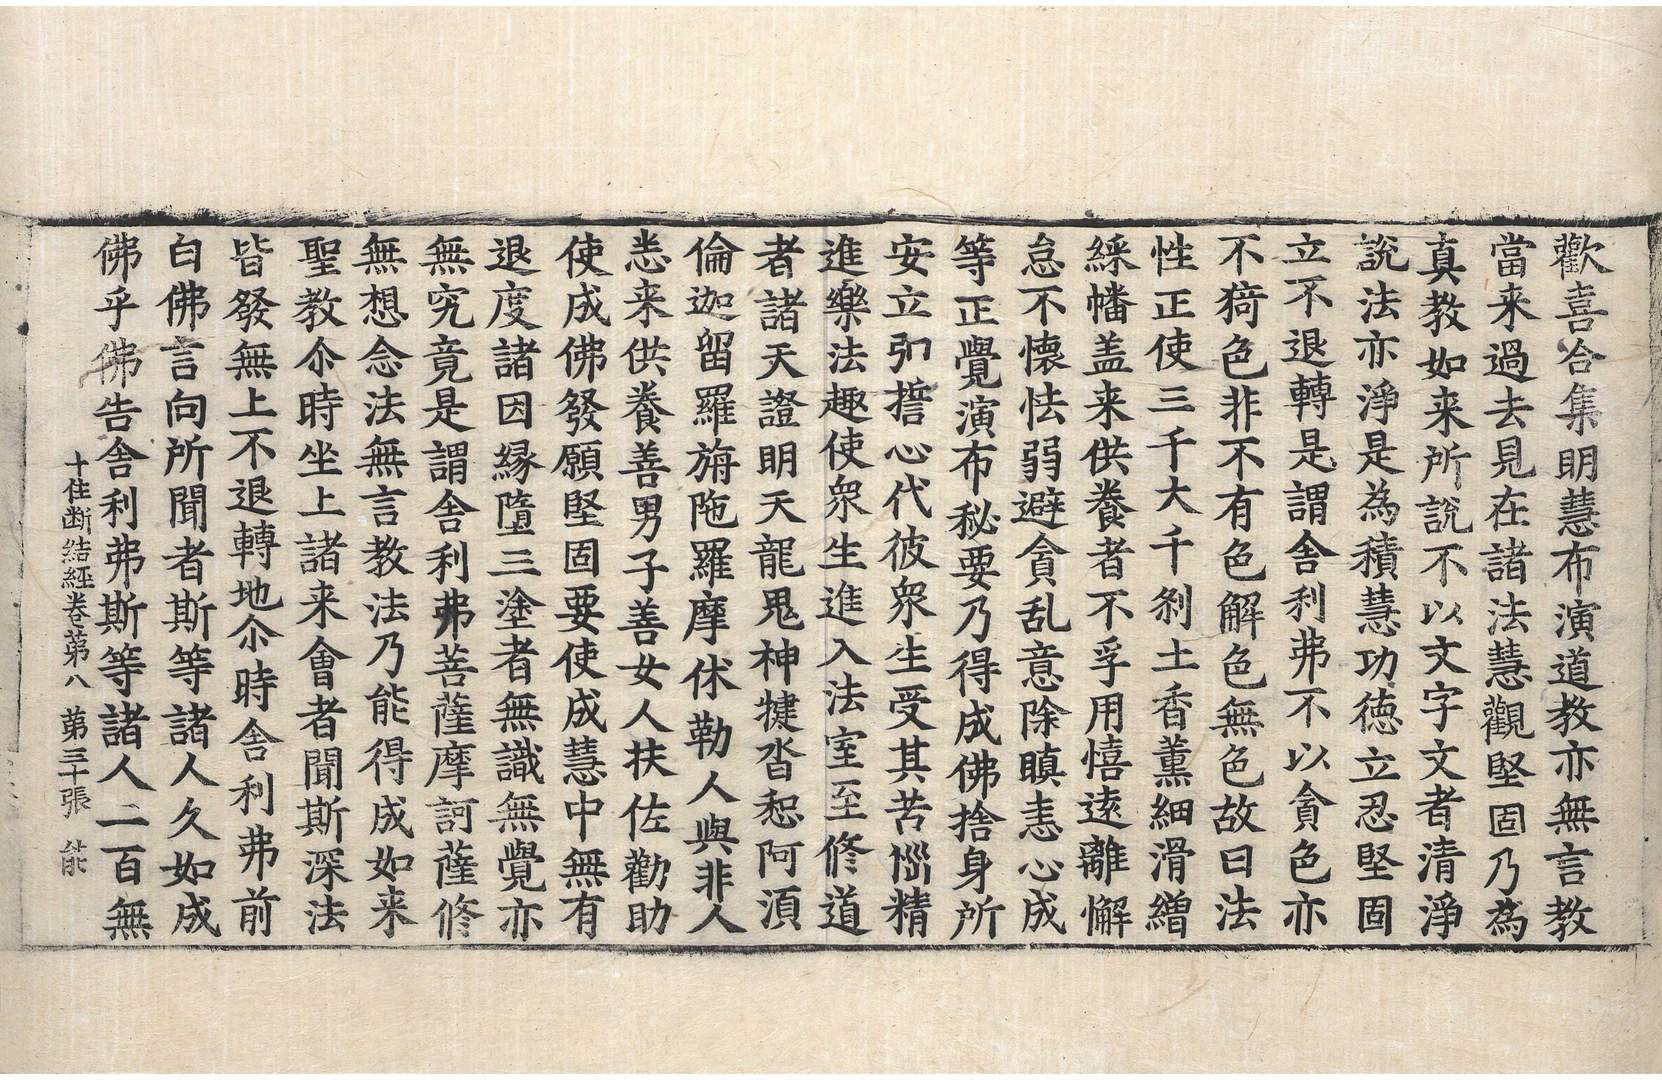 歡喜合集明慧布演道教亦無言教
當来過去見在諸法慧觀堅固乃為
真教如来所說不以文字文者清淨
說法亦淨是為積慧功德立忍堅固
立不退轉是謂舍利弗不以貪色亦
不猗色非不有色解色無色故曰法
性正使三千大千刹土香薰細滑繒
綵幡盖来供養者不孚用憘遠離懈
怠不懷怯弱避貪乱意除瞋恚心成
等正覺演布秘要乃得成佛捨身所
安立弘誓心代彼衆生受其苦惱精
進樂法趣使衆生進入法室至修道
者諸天證明天龍鬼神犍沓惒阿湏
倫迦留羅旃陁羅摩休勒人與非人
悉来供養善男子善女人扶佐勸助
使成佛發願堅固要使成慧中無有
退度諸因縁墮三塗者無識無覺亦
無究竟是謂舍利弗菩薩摩訶薩修
無想念法無言教法乃能得成如来
聖教尒時坐上諸来會者聞斯深法
皆發無上不退轉地尒時舍利弗前
白佛言向所聞者斯等諸人久如成
佛乎佛告舍利弗斯等諸人二百無
十住断結經卷第八 第三十張 能